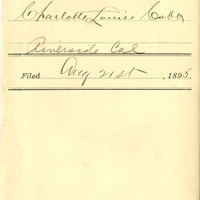 Charlotte Louise Cobb
Riverside Cal
Filed Aug 21st, 1895.